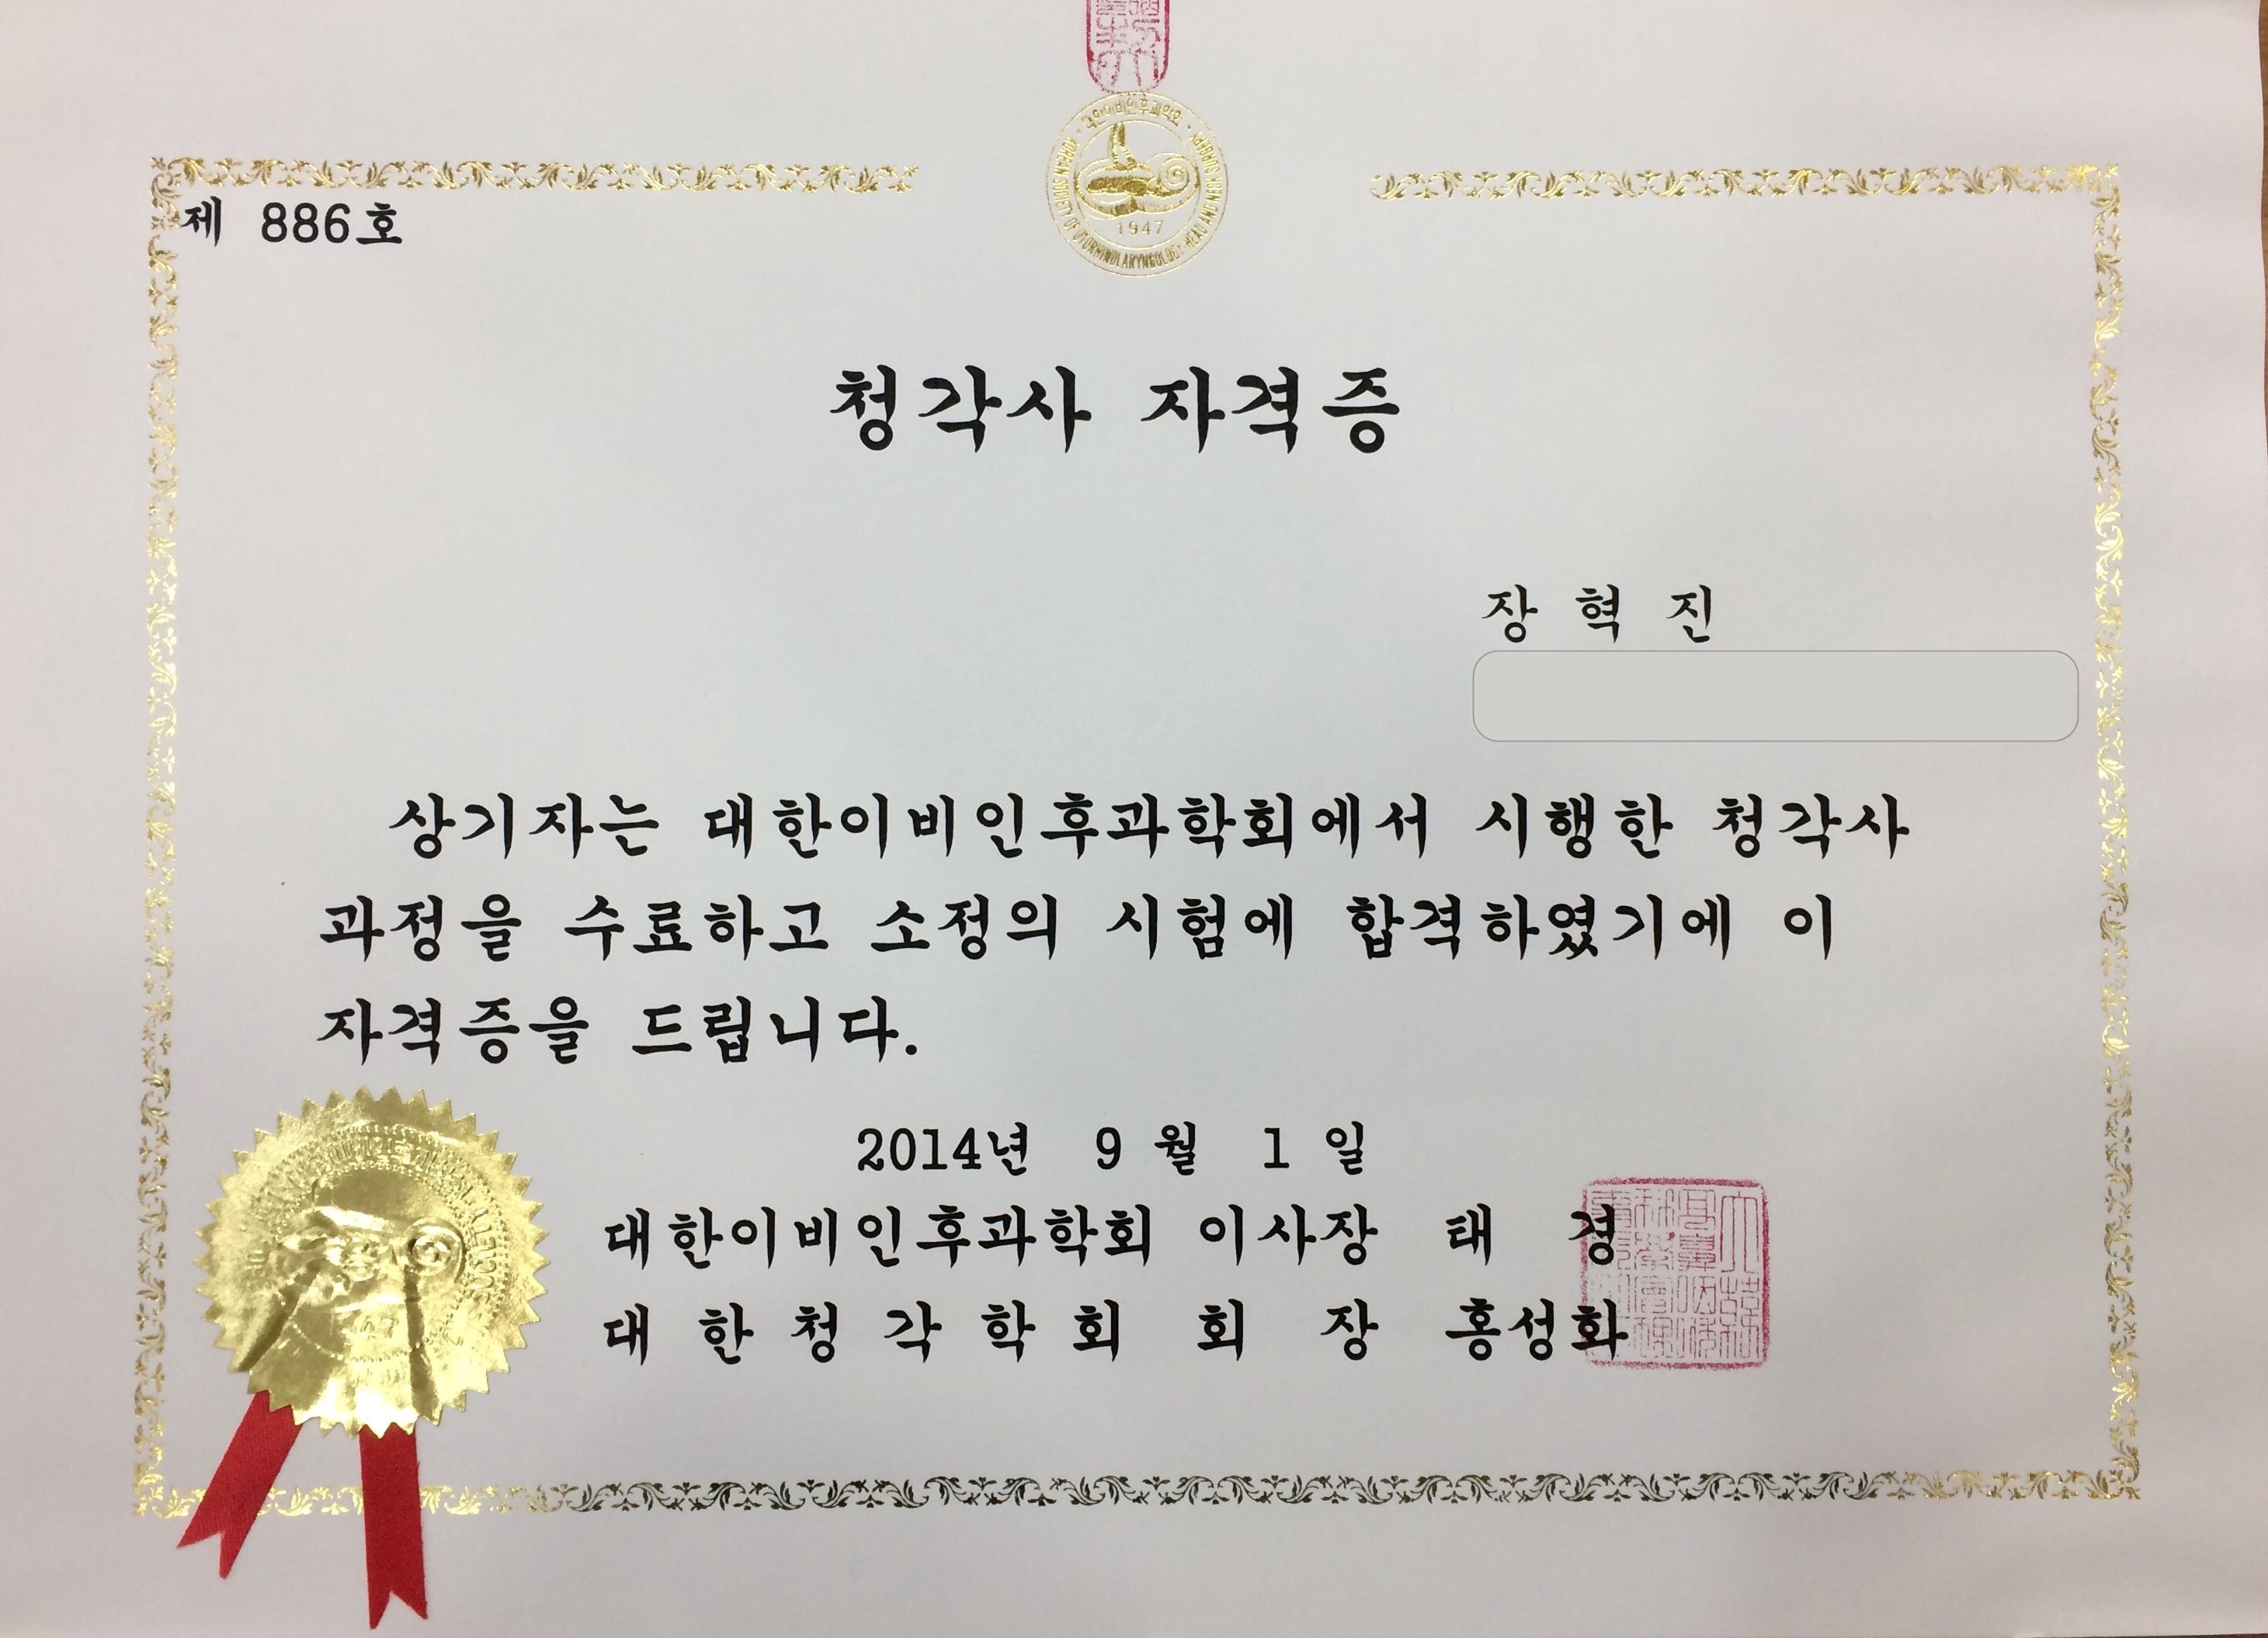 제 886호
1947
청각사 자격증
장 혁 진
상기자는 대한이비인후과학회에서 시행한 청각사
과정을 수료하고 소정의 시험에 합격하였기에 이
자격증을 드립니다.
2014년 9 월 1 일
대한이비인후과학회 이사장 태 경
대 한 청 각 학 회 회 장 홍성화